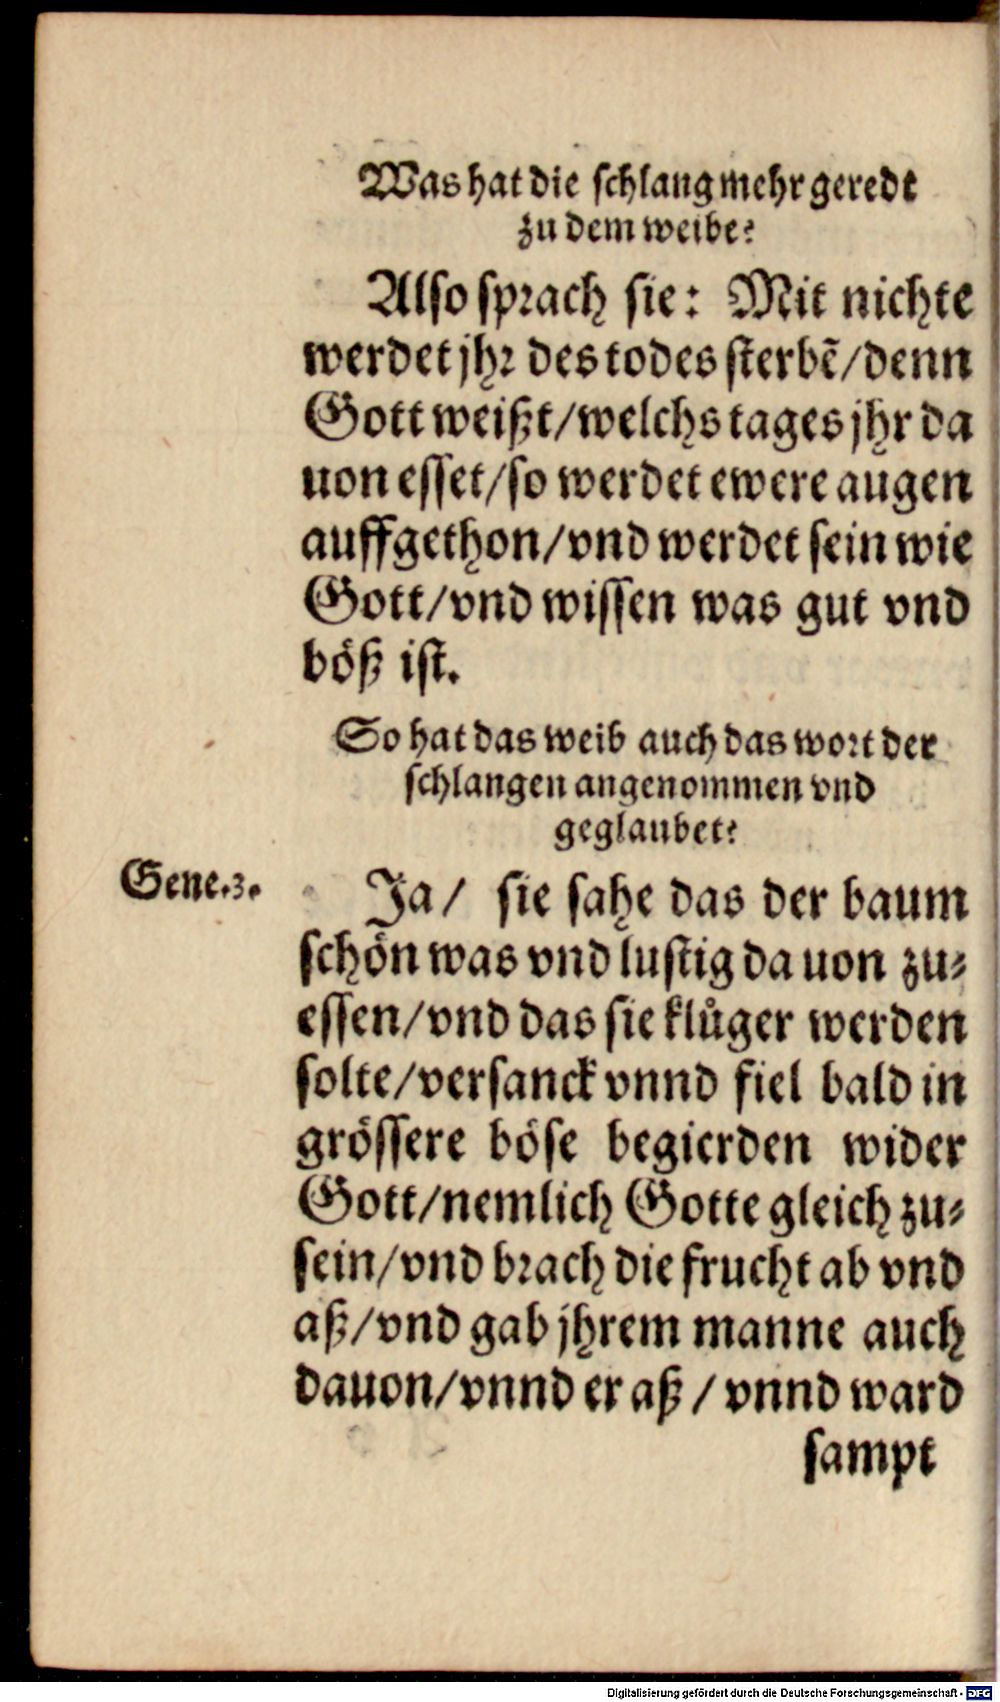 Was hat die schlang mehr geredt
zu dem weibe?
Also sprach sie: Mit nichte
werdet jhr des todes sterbẽ/denn
Gott weißt/welchs tages jhr da
uon esset/so werdet ewere augen
auffgethon/vnd werdet sein wie
Gott/vnd wissen was gut vnd
böß ist.
So hat das weib auch das wort der
schlangen angenommen vnd
geglaubet?
Gene.3.
Ja/ sie sahe das der baum
schön was vnd lustig da uon zu-
essen/vnd das sie klůger werden
solte/versanck vnnd fiel bald in
grössere böse begierden wider
Gott/nemlich Gotte gleich zu-
sein/vnd brach die frucht ab vnd
aß/vnd gab jhrem manne auch
dauon/vnnd er aß / vnnd ward
sampt
Digitalisierung gefördert durch die Deutsche Forschungsgemeinschaft - DFG